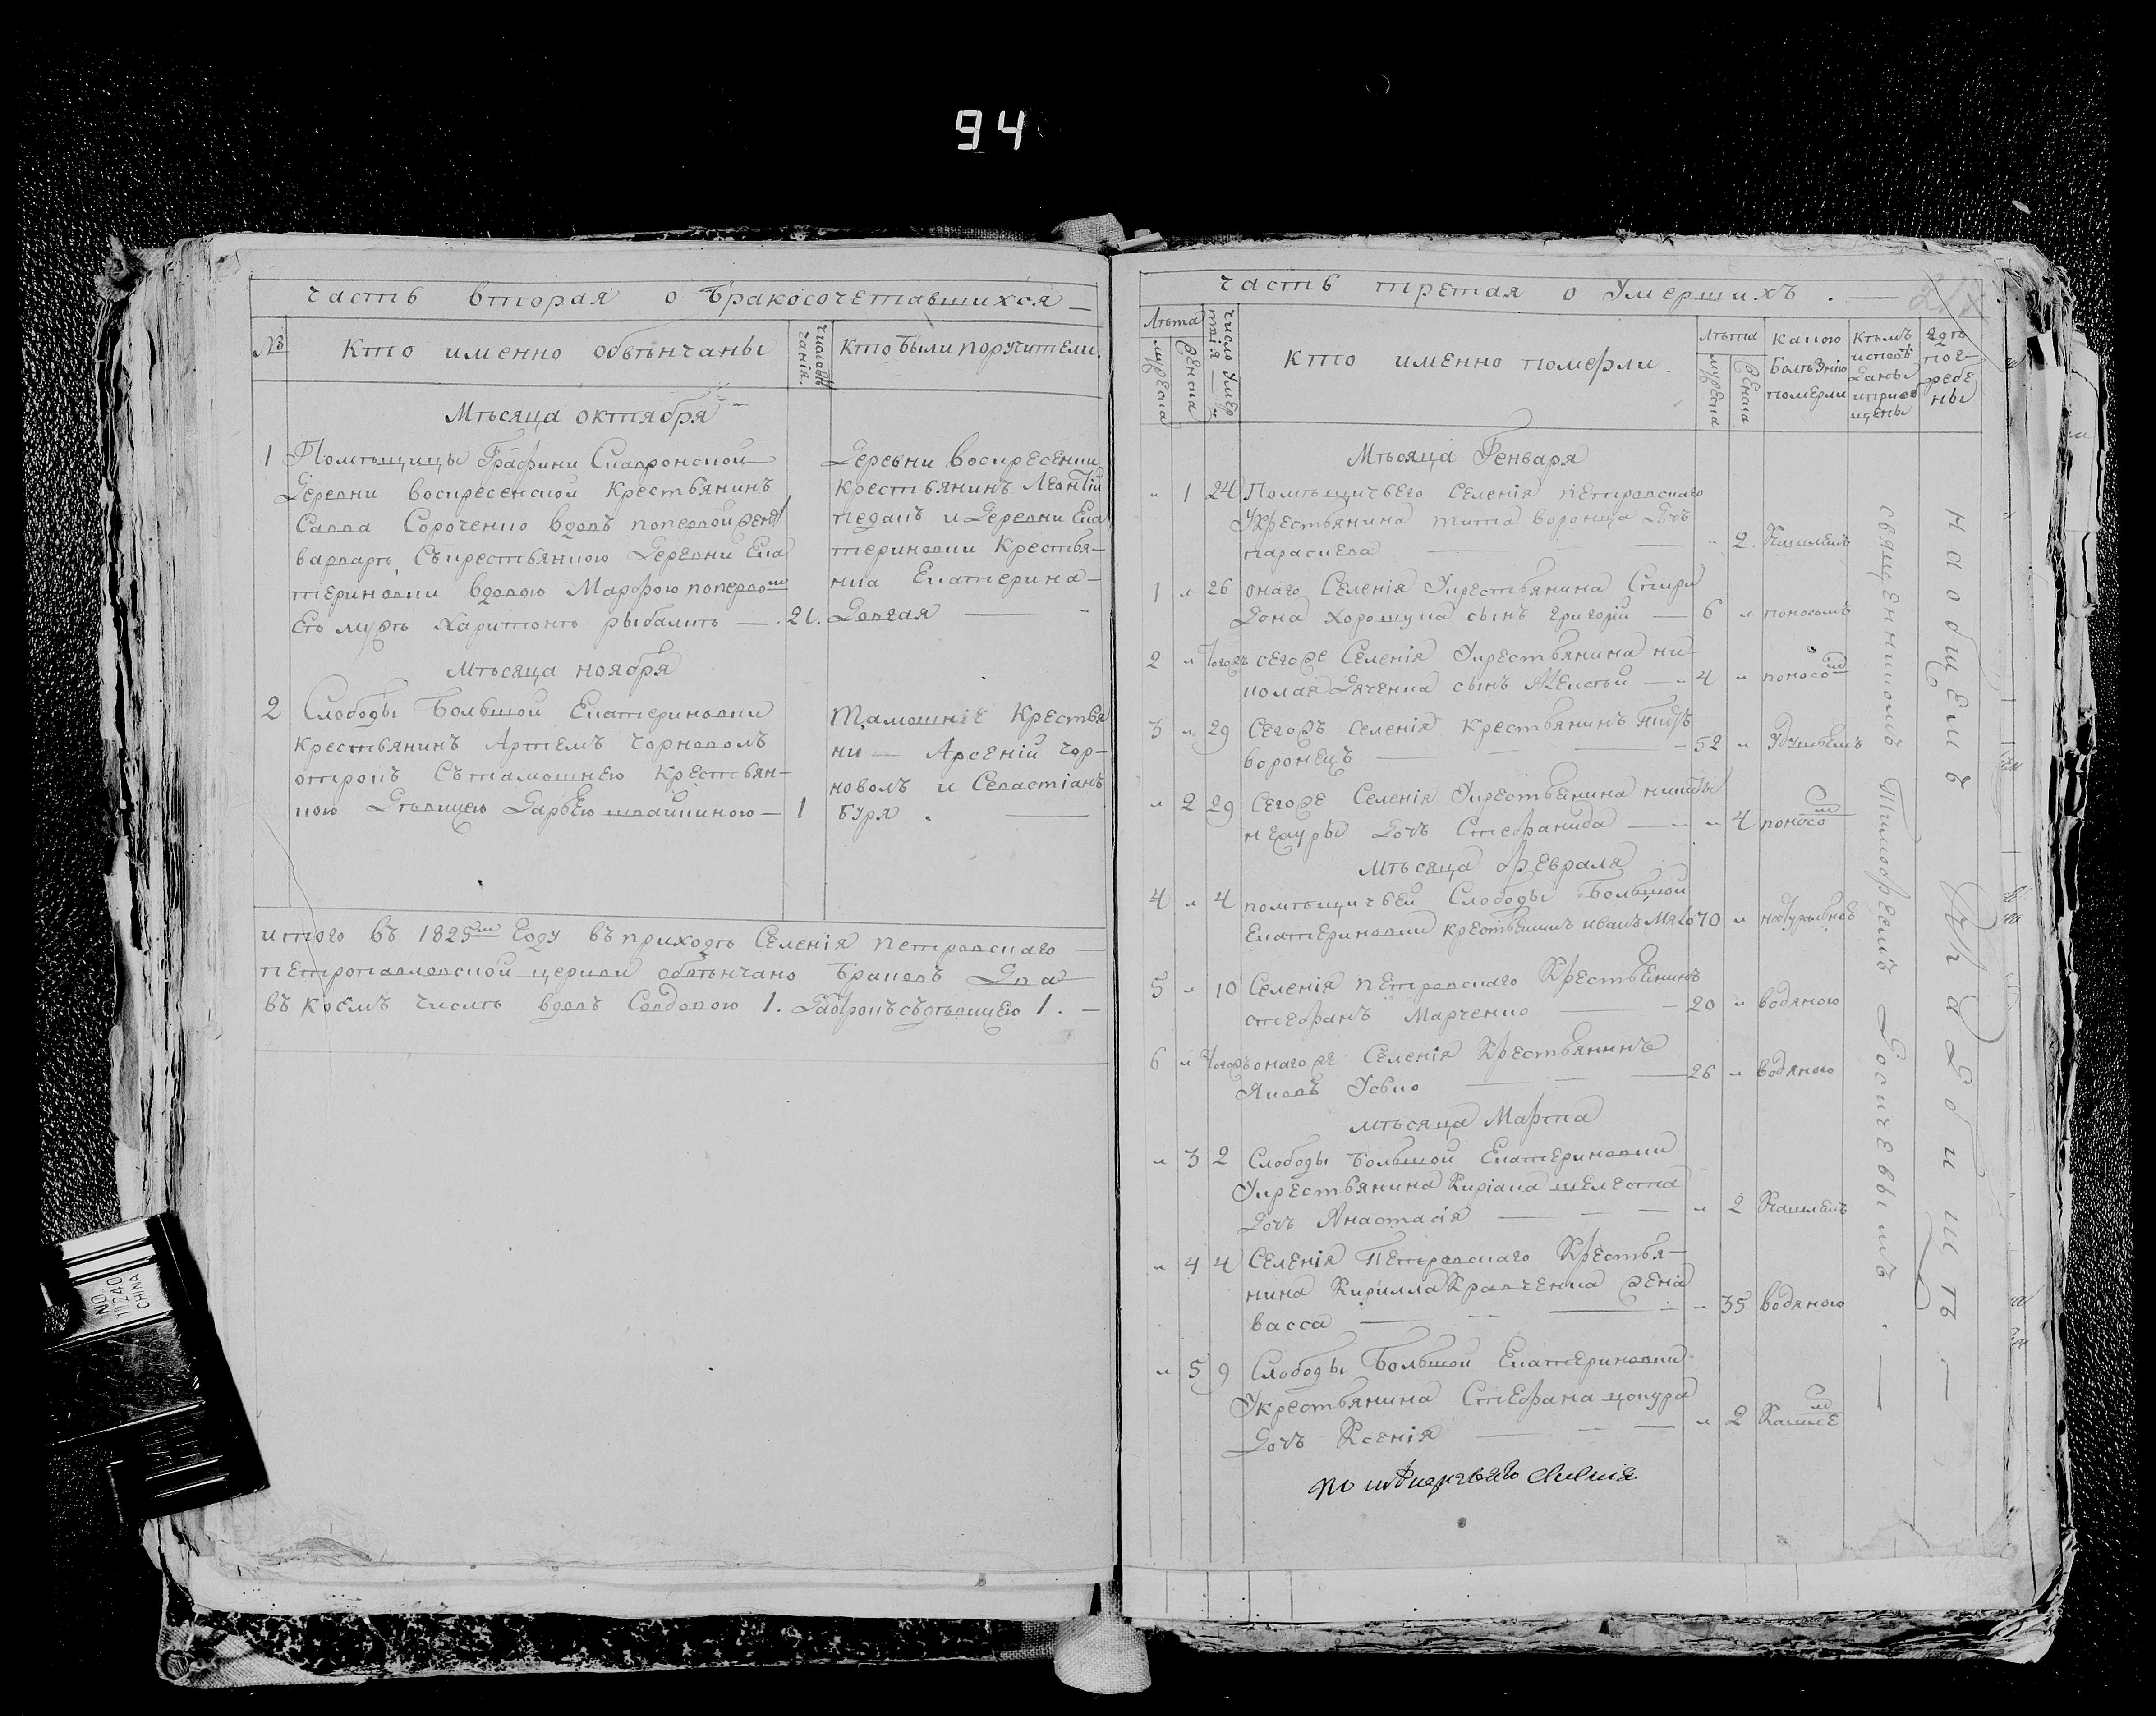 94
часть вторая о Бракосочетавшихся
№
Кто именно обвѣнчаны
число вѣнчанія.
Кто были поручители.
Мѣсяца октября
1 Помѣщицы Графини Скавронской
Деревни воскресенской Крестьянинъ
Савва Сороченко вдовъ попервой женѣ
варварѣ, Съкрестьянкою Деревни Ека
териновки вдовою Марфою поперво
Ей мужѣ Харитонѣ рыбалкѣ — 21.
Деревни воскресенки
Крестьянинъ Леонтій
педанъ и Деревни Ека
териновки Крестья-
нка Екатерина
Довгая
Мѣсяца ноября
2 Слободы Большой Екатериновки
крестьянинъ Артемъ Чорноволъ
отрокъ Сътамошнею Крестьян-
кою Дѣвицею Дарьею швайкиною — 1
Тамошніе Крестья
ни — Арсеній Чор-
новолъ и Севастіанъ
Буря .
итого въ 1825м Году въ приходѣ Селенія петровскаго
петропавловской церкви обвѣнчано браковъ Два
въ коемъ числѣ вдовъ Совдовою 1. Отрокъ съдѣвицею 1. —
часть третая о Умершихъ .
Лѣта
мужеска
Женска
число Умертвія
кто именно померли.
лѣта
мужеска
Женска
какою
Болѣзнію
померли
Кѣмъ
исповѣ
Даны
иприоб
щены
гдѣ
пог-
ребе
ны
Мѣсяца Генваря
„ 1 24 Помѣщичьего Селенія петровскаго
Укрестьянина тита воронца Дочь
параскева — „ 2. Кашлемъ
1 „ 26 онаго Селенія Укрестьянина Спири
Дона Хорошуна сынъ григорій — 6 „ поносомъ
2 „ Тогожъ сегоже Селенія Укрестьянина ни
колая Дяченка сынъ Алексѣй — 4 „ поносо м
3 „ 29 Сегожъ Селенія Крестьянинъ титъ
воронецъ — 52 „ Удушьемъ
„ 2 29 Сегоже Селенія Укрестьянина никиты
нежуры Дочь Стефанида — „ 4 поносо м
мѣсяца февраля
4 „ 4 помѣщичьей Слободы Большой
Екатериновки крестьянинъ иванъ 70 „ натуральной
5 „ 10 Селенія петровскаго Крестьянинъ
стефанъ Марченко — 20 „ водяною
6 „ Тогожъ онагоже Селенія Крестьянинъ
Яковъ Усвко — 26 „ водяною
мѣсяца Марта
„ 3 2 Слободы Большой Екатериновки
Укрестьянина Киріака шелеста
Дочь Анастасія — „ 2 Кашлемъ
„ 4 4 Селенія Петровскаго Крестья-
нина Кирилла Кравченка жена
васса — „ 35 водяною
„ 5 9 Слободы Большой Екатериновки
Укрестьянина Стефана цокура
Дочь Ксенія — „ 2 Кашле м
священникомъ Тимофеемъ Досичевымъ . —
на общемъ Кладбищѣ —
NO
11240
CHINA